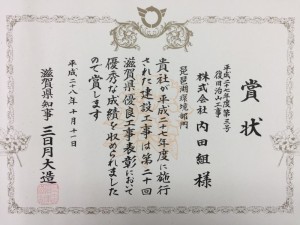 賞状
平成二十七年度第三号
復旧治山工事
株式会社 内田組 様
琵琶湖環境部門
貴社が平成二十七年度に施行
された建設工事は第二十回
滋賀県優良工事表彰において
優秀な成績を収められました
ので賞します
平成二十八年十月十二日
滋賀県知事 三日月大造